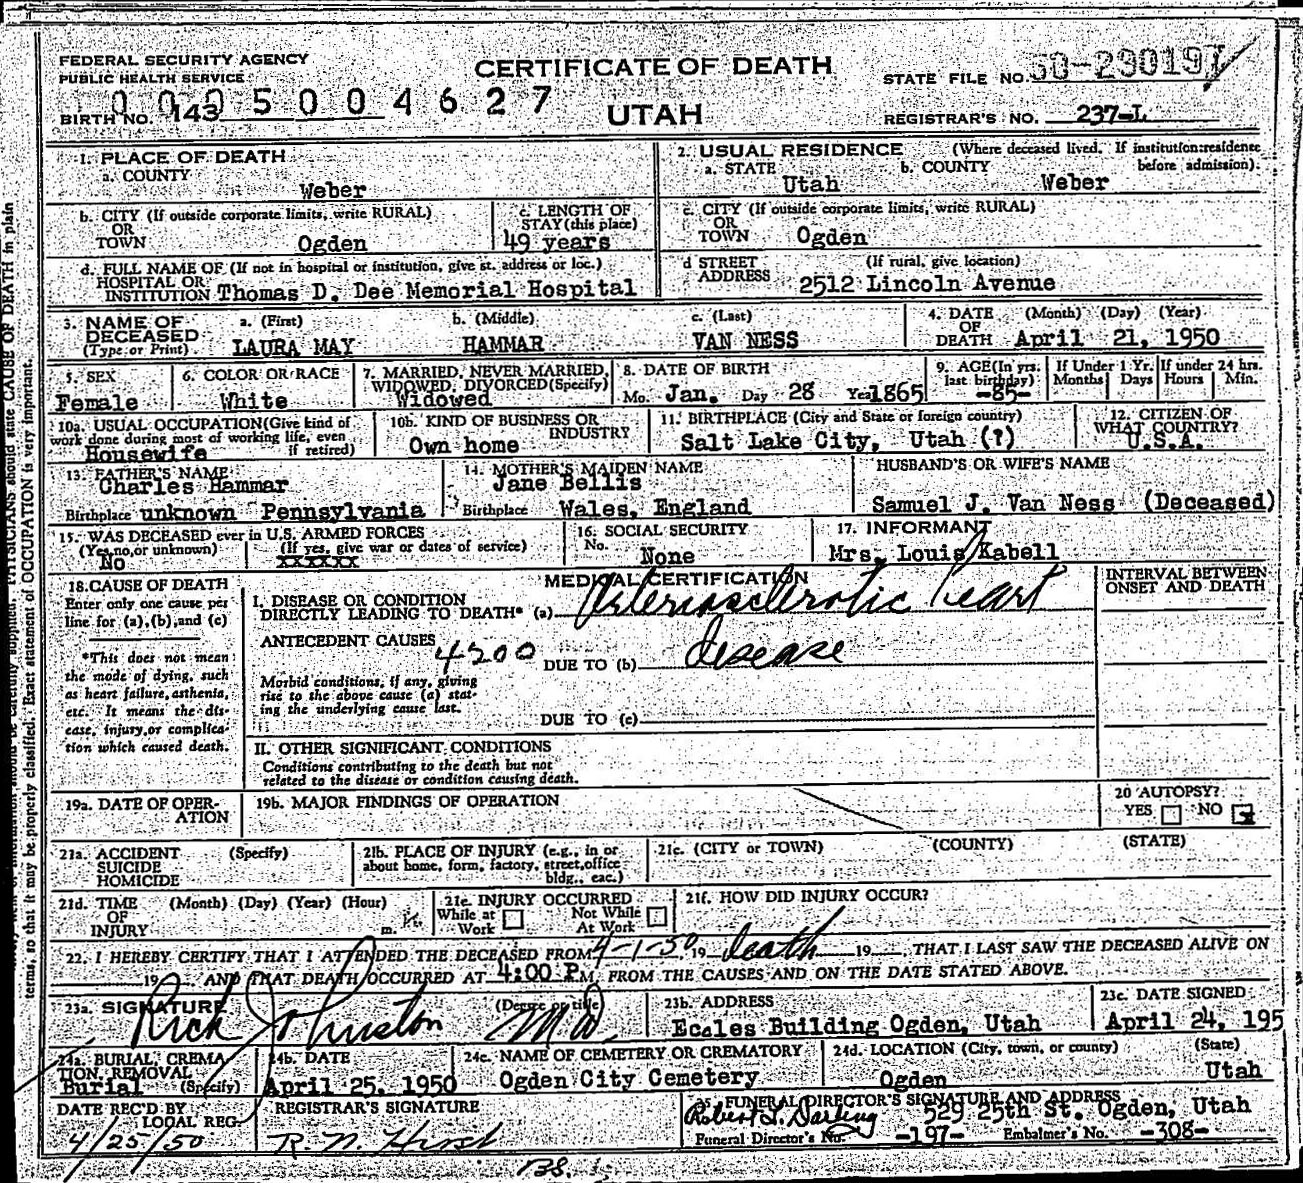 FEDERAL SECURITY AGENCY
PUBLIC HEALTH SERVICE
CERTIFICATE OF DEATH
STATE FILE NO. 50-290197
0005004627
BIRTH NO. 143
UTAH
REGISTRAR'S NO. 237-L
1. PLACE OF DEATH
a. COUNTY
Weber
2. USUAL RESIDENCE (Where deceased lived. If institution:residence before admission).
a. STATE Utah b. COUNTY Weber
b. CITY (If outside corporate limits, write RURAL)
OR
TOWN Ogden
c. LENGTH OF
STAY (this place)
49 years
c. CITY (If outside corporate limits, write RURAL)
OR
TOWN Ogden
d. FULL NAME OF (If not in hospital or institution, give st. address or loc.)
HOSPITAL OR
INSTITUTION Thomas D. Dee Memorial Hospital
d STREET (If rural, give location)
ADDRESS 2512 Lincoln Avenue
3. NAME OF a. (First) b. (Middle) c. (Last)
DECEASED
(Type or Print) LAURA MAY HAMMAR VAN NESS
4. DATE (Month) (Day) (Year)
OF
DEATH April 21, 1950
5. SEX
Female
6. COLOR OR RACE
White
7. MARRIED, NEVER MARRIED,
WIDOWED, DIVORCED (Specify)
Widowed
8. DATE OF BIRTH
Mo. Jan. Day 28 Yr. 1865
9. AGE (In yrs.
last birthday)
-85-
If Under 1 Yr.
Months Days
If under 24 hrs.
Hours Min.
10a. USUAL OCCUPATION (Give kind of
work done during most of working life, even
if retired)
Housewife
10b. KIND OF BUSINESS OR
INDUSTRY
Own home
11. BIRTHPLACE (City and State or foreign country)
Salt Lake City, Utah (?)
12. CITIZEN OF
WHAT COUNTRY?
U.S.A.
13. FATHER'S NAME
Charles Hammar
Birthplace unknown Pennsylvania
14. MOTHER'S MAIDEN NAME
Jane Bellis
Birthplace Wales, England
HUSBAND'S OR WIFE'S NAME
Samuel J. Van Ness (Deceased)
15. WAS DECEASED ever in U.S. ARMED FORCES
(Yes, no, or unknown) (If yes, give war or dates of service)
No xxxxxx
16. SOCIAL SECURITY
No. None
17. INFORMANT
Mrs. Louis Kabell
18. CAUSE OF DEATH
Enter only one cause per
line for (a), (b), and (c)
*This does not mean
the mode of dying, such
as heart failure, asthenia,
etc. It means the dis-
ease, injury, or complica-
tion which caused death.
MEDICAL CERTIFICATION
I. DISEASE OR CONDITION
DIRECTLY LEADING TO DEATH* (a) Arteriosclerotic heart
ANTECEDENT CAUSES 4200
DUE TO (b) disease
Morbid conditions, if any, giving
rise to the above cause (a) stat-
ing the underlying cause last.
DUE TO (c)
INTERVAL BETWEEN
ONSET AND DEATH
II. OTHER SIGNIFICANT CONDITIONS
Conditions contributing to the death but not
related to the disease or condition causing death.
19a. DATE OF OPER-
ATION
19b. MAJOR FINDINGS OF OPERATION
20 AUTOPSY?
YES NO
21a. ACCIDENT (Specify)
SUICIDE
HOMICIDE
21b. PLACE OF INJURY (e.g., in or
about home, form, factory, street, office
bldg., eac.)
21c. (CITY or TOWN) (COUNTY) (STATE)
21d. TIME (Month) (Day) (Year) (Hour)
OF
INJURY m.
21e. INJURY OCCURRED
While at Work Not While At Work
21f. HOW DID INJURY OCCUR?
22. I HEREBY CERTIFY THAT I ATTENDED THE DECEASED FROM 4-1-50, 19 death 19 , THAT I LAST SAW THE DECEASED ALIVE ON
19 , AND THAT DEATH OCCURRED AT 4:00 P M. FROM THE CAUSES AND ON THE DATE STATED ABOVE.
23a. SIGNATURE (Degree or title)
Rick Johnston MD.
23b. ADDRESS
Eccles Building Ogden, Utah
23c. DATE SIGNED
April 24, 195
24a. BURIAL, CREMA
TION, REMOVAL
Burial (Specify)
24b. DATE
April 25, 1950
24c. NAME OF CEMETERY OR CREMATORY
Ogden City Cemetery
24d. LOCATION (City, town, or county) (State)
Ogden Utah
DATE REC'D BY
LOCAL REG.
4/25/50
REGISTRAR'S SIGNATURE
R. N. Hirst
25. FUNERAL DIRECTOR'S SIGNATURE AND ADDRESS
Robert L. Darling 529 25th St. Ogden, Utah
Funeral Director's No. -197- Embalmer's No. -308-
138
terms, so that it may be properly classified. Exact statement of OCCUPATION is very important.
PHYSICIANS should state CAUSE OF DEATH in plain